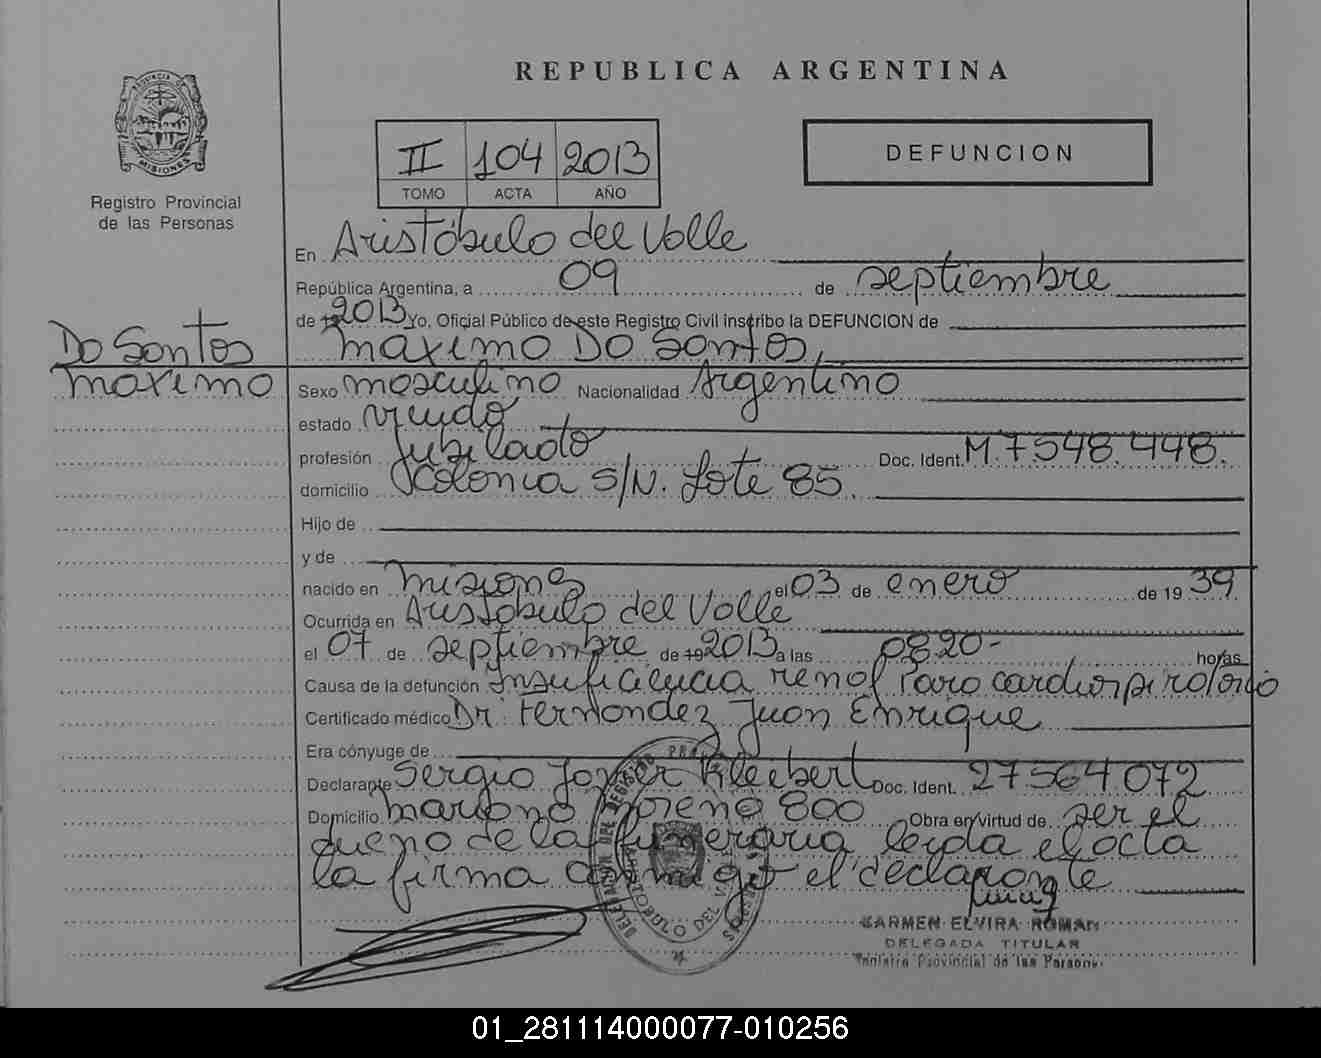 REPUBLICA ARGENTINA
PROVINCIA DE
MISIONES
Registro Provincial
de las Personas
II 104 2013
TOMO ACTA AÑO
DEFUNCION
En Aristóbulo del Valle
República Argentina, a 09 de septiembre
de 19 2013 Yo, Oficial Público de este Registro Civil inscribo la DEFUNCION de
Do Santos Maximo Do Santos,
Maximo Sexo masculino Nacionalidad Argentino
estado viudo
profesión Jubilado Doc. Ident. M.7548.448.
domicilio Colonia S/N. Lote 85.
Hijo de
y de
nacido en Misiones el 03 de enero de 19 39
Ocurrida en Aristobulo del Valle
el 07 de septiembre de 19 2013 a las 08.20- horas
Causa de la defunción Insuficiencia renal Paro cardiorespiratorio
Certificado médico Dr. Fernandez Juan Enrique
Era cónyuge de
Declarante Sergio Javier Kleibert Doc. Ident. 27564072
Domicilio Mariano Moreno 800 Obra en virtud de ser el
dueño de la funeraria leida el acta
la firma conmigo el declarante
CARMEN ELVIRA ROMAN
DELEGADA TITULAR
Registro Provincial de las Personas
01_281114000077-010256